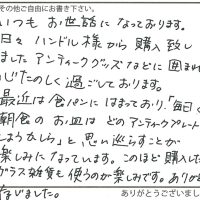 その他ご自由にお書き下さい。
いつもお世話になっております。
日々ハンドル様から購入致し
ましたアンティークグッズなどに囲まれ
心たのしく過ごしております。
最近は食パンにはまっており、「毎日
朝食のお皿はどのアンティークプレート
しようかしら」と思い巡らすことが
楽しみになっています。このほど購入した
ガラス雑貨も使うのが楽しみです。ありがと
なじました。
ありがとうございまし